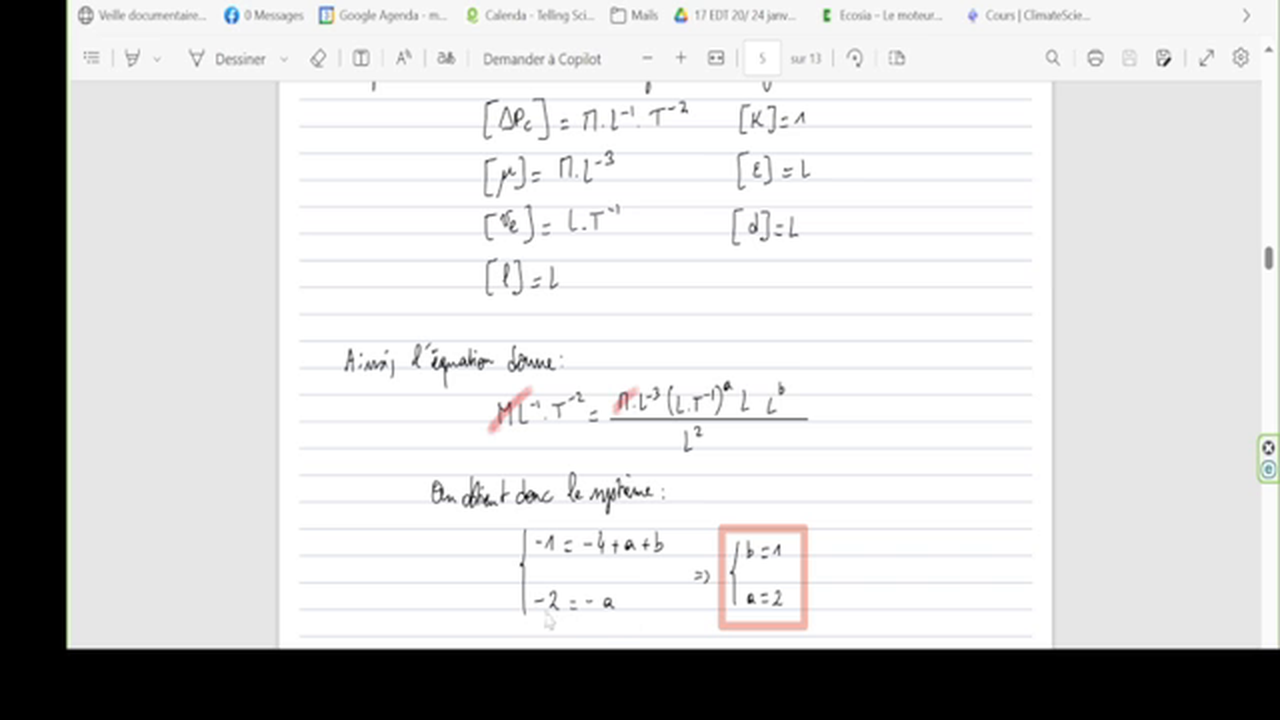 Veille documentaire... 0 Messages Google Agenda - m... Calenda - Telling Sci... Mails 17 EDT 20/ 24 janv... Ecosia - Le moteur... Cours | ClimateScie...
Dessiner Demander à Copilot 5 sur 13
[ΔPc] = M.L⁻¹.T⁻² [K]=1
[μ]= M.L⁻³ [ε]=L
[Ve]= L.T⁻¹ [d]=L
[l]=L
Ainsi, l'équation donne:
M L⁻¹.T⁻² = M.L⁻³(L.T⁻¹)ᵃ L Lᵇ
L²
On obtient donc le système:
-1 = -4+a+b => b=1
-2 = -a a=2